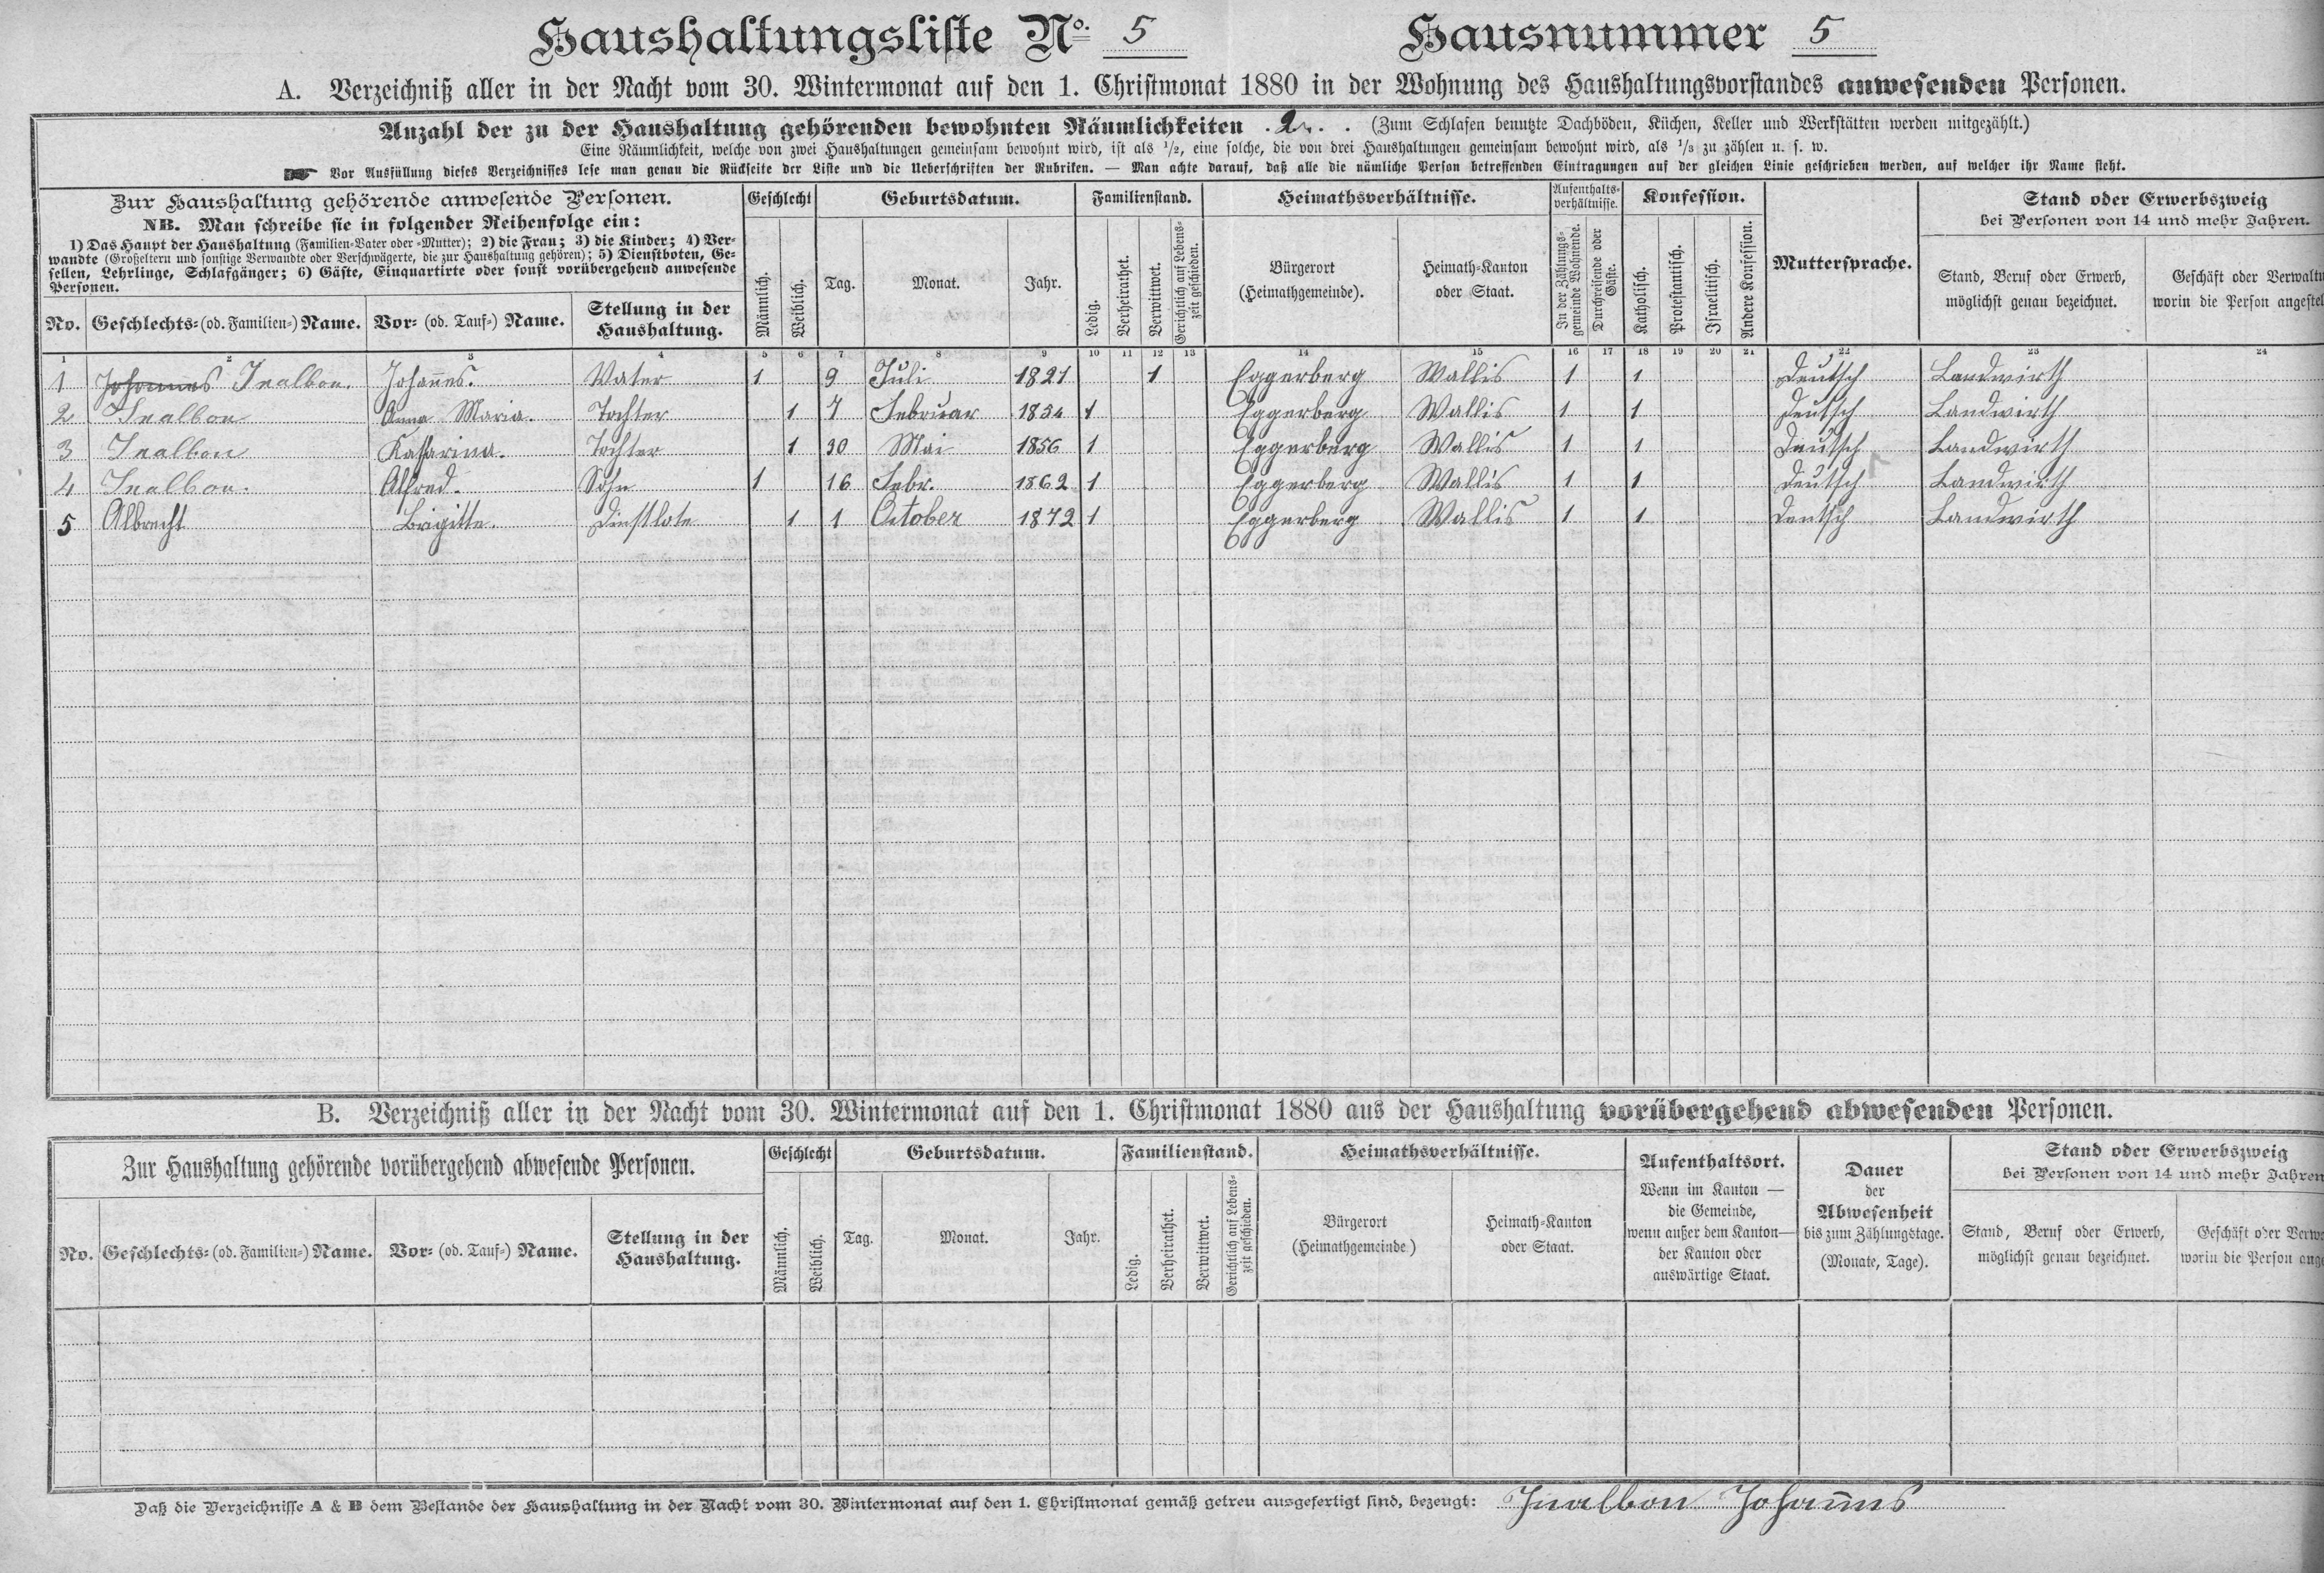 Haushaltungsliste No. 5 Hausnummer 5
A. Verzeichniß aller in der Nacht vom 30. Wintermonat auf den 1. Christmonat 1880 in der Wohnung des Haushaltungsvorstandes anwesenden Personen.
Anzahl der zu der Haushaltung gehörenden bewohnten Räumlichkeiten . 2 . . (Zum Schlafen benutzte Dachböden, Küchen, Keller und Werkstätten werden mitgezählt.)
Eine Räumlichkeit, welche von zwei Haushaltungen gemeinsam bewohnt wird, ist als 1/2, eine solche, die von drei Haushaltungen gemeinsam bewohnt wird, als 1/3 zu zählen u. s. w.
☛ Vor Ausfüllung dieses Verzeichnisses lese man genau die Rückseite der Liste und die Ueberschriften der Rubriken. — Man achte darauf, daß alle die nämliche Person betreffenden Eintragungen auf der gleichen Linie geschrieben werden, auf welcher ihr Name steht.
Zur Haushaltung gehörende anwesende Personen.
NB. Man schreibe sie in folgender Reihenfolge ein:
1) Das Haupt der Haushaltung (Familien-Vater oder -Mutter); 2) die Frau; 3) die Kinder; 4) Ver-
wandte (Großeltern und sonstige Verwandte oder Verschwägerte, die zur Haushaltung gehören); 5) Dienstboten, Ge-
sellen, Lehrlinge, Schlafgänger; 6) Gäste, Einquartirte oder sonst vorübergehend anwesende
Personen.
No. Geschlechts- (od. Familien-) Name. Vor- (od. Tauf-) Name. Stellung in der
Haushaltung.
Geschlecht
Männlich. Weiblich.
Geburtsdatum.
Tag. Monat. Jahr.
Familienstand.
Ledig. Verheirathet. Verwittwet. Gerichtlich auf Lebens-
zeit geschieden.
Heimathsverhältnisse.
Bürgerort
(Heimathgemeinde).
Heimath-Kanton
oder Staat.
Aufenthalts-
verhältnisse.
In der Zählungs-
gemeinde Wohnende.
Durchreisende oder
Gäste.
Konfession.
Katholisch. Protestantisch. Israelitisch. Andere Konfession.
Muttersprache.
Stand oder Erwerbszweig
bei Personen von 14 und mehr Jahren.
Stand, Beruf oder Erwerb,
möglichst genau bezeichnet.
Geschäft oder Verwaltu
worin die Person angestel
1 2 3 4 5 6 7 8 9 10 11 12 13 14 15 16 17 18 19 20 21 22 23 24
1 Johannes Inalbon. Johañes. Vater 1 9 Juli 1821 1 Eggerberg Wallis 1 1 Deutsch Landwirth
2 Inalbon Anna Maria. Tochter 1 7 Februar 1854 1 Eggerberg Wallis 1 1 Deutsch Landwirth
3 Inalbon Katharina. Tochter 1 30 Mai 1856 1 Eggerberg Wallis 1 1 Deutsch Landwirth
4 Inalbon. Alfred. Sohn 1 16 Febr. 1862 1 Eggerberg Wallis 1 1 Deutsch Landwirth
5 Albrecht Brigitta. Dienstbote 1 1 October 1872 1 Eggerberg Wallis 1 1 Deutsch Landwirth
B. Verzeichniß aller in der Nacht vom 30. Wintermonat auf den 1. Christmonat 1880 aus der Haushaltung vorübergehend abwesenden Personen.
Zur Haushaltung gehörende vorübergehend abwesende Personen.
No. Geschlechts- (od. Familien-) Name. Vor- (od. Tauf-) Name. Stellung in der
Haushaltung.
Geschlecht
Männlich. Weiblich.
Geburtsdatum.
Tag. Monat. Jahr.
Familienstand.
Ledig. Verheirathet. Verwittwet. Gerichtlich auf Lebens-
zeit geschieden.
Heimathsverhältnisse.
Bürgerort
(Heimathgemeinde)
Heimath-Kanton
oder Staat.
Aufenthaltsort.
Wenn im Kanton —
die Gemeinde,
wenn außer dem Kanton—
der Kanton oder
auswärtige Staat.
Dauer
der
Abwesenheit
bis zum Zählungstage.
(Monate, Tage).
Stand oder Erwerbszweig
bei Personen von 14 und mehr Jahren
Stand, Beruf oder Erwerb,
möglichst genau bezeichnet.
Geschäft oder Verwa
worin die Person ange
Daß die Verzeichnisse A & B dem Bestande der Haushaltung in der Nacht vom 30. Wintermonat auf den 1. Christmonat gemäß getreu ausgefertigt sind, bezeugt: Inalbon Johañes